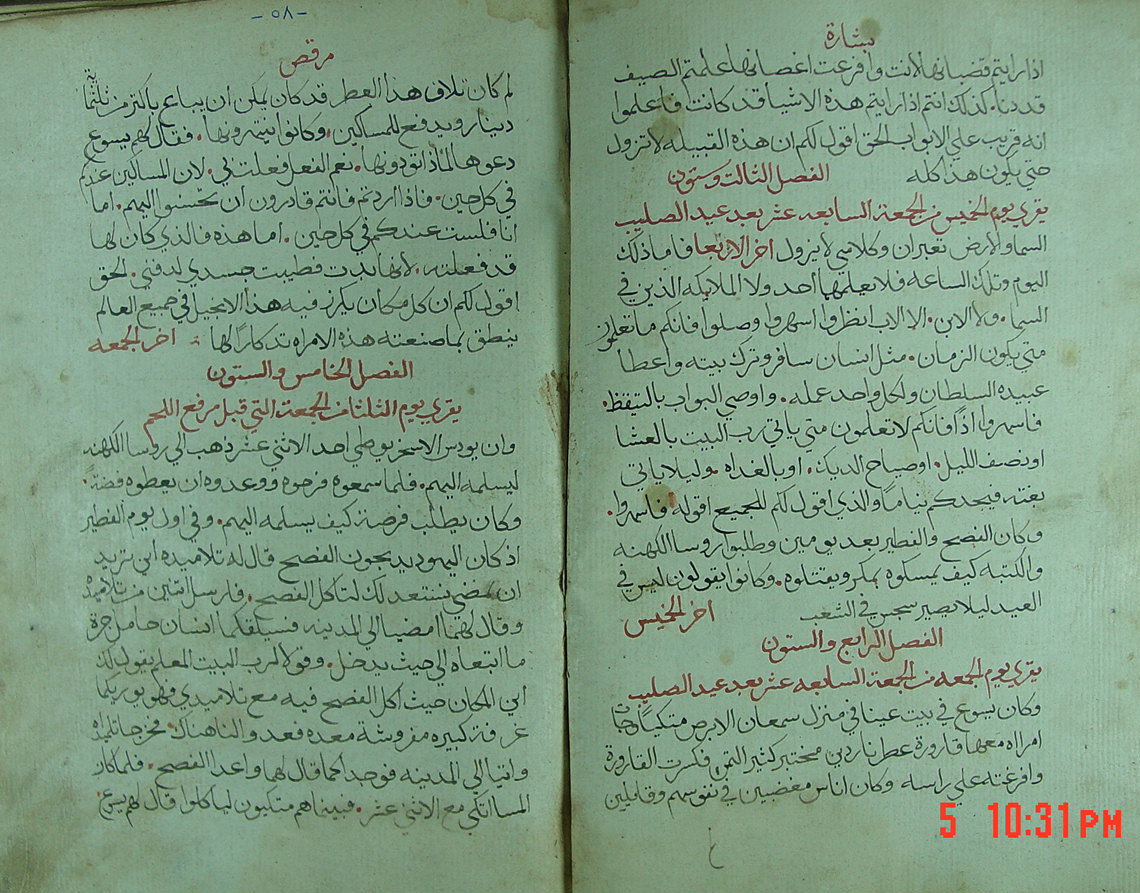 بشارة
اذا رايتم قضبانها لانت وافرعت اغصانها علمتم الصيف
قد دنا. كذلك انتم اذا رايتم هذه الاشيا قد كانت فاعلموا
انه قريب علي الابواب الحق اقول لكم ان هذه القبيله لا تزول
حتي يكون هذا كله الفصل الثالت وستون
يقري يوم الخميس من الجمعة السابعه عشر بعد عيد الصليب
السما والارض تعبران وكلامي لا يزول اخر الاربعا فاما ذلك
اليوم وتلك الساعه فلا يعلمها احد ولا الملايكه الذين في
السما. ولا الابن. الا الاب انظروا اسهروا وصلوا فانكم ما تعلمون
متي يكون الزمان. مثل انسان سافر وترك بيته واعطا
عبيده السلطان ولكل واحد عمله. واوصي البواب بالتيقظ.
فاسهروا اذًا فانكم لا تعلمون متي ياتي رب البيت بالعشا
او نصف الليل. او صياح الديك. او بالغداه. وليلا ياتي
بغته فيجدكم نيامًا والذي اقول لكم للجميع اقوله فاسهروا.
وكان الفصح والفطير بعد يومين وطلبوا روسا الكهنه
والكتبه كيف يمسكوه بمكر ويقتلوه. وكانوا يقولون ليس في
العيد ليلا يصير سجس في الشعب اخر الخميس
الفصل الرابع والستون
يقري يوم الجمعه من الجمعة السابعه عشر بعد عيد الصليب
وكان يسوع في بيت عينا في منزل سمعان الابرص متكيًا جات
امراه معها قارورة عطر ناردين مختبر كثير الثمن فكسرت القارورة
وافرغته علي راسه وكان اناس مغضبين في نفوسهم وقايلين
-٥٨-
مرقص
لم كان تلاف هذا العطر قد كان يمكن ان يباع باكتر من تلتماية
دينار ويدفع للمساكين. وكانوا ينتهرونها. فقال لهم يسوع
دعوها لماذا تودونها. نعم الفعل فعلت بي. لان المساكين عندكم
في كل حين. فاذا اردتم فانتم قادرون ان تحسنوا اليهم. اما
انا فلست عندكم في كل حين. اما هذه فالذي كان لها
قد فعلته. لانها بدرت فطيبت جسدي لدفني. الحق
اقول لكم ان كل مكان يكرز فيه هذا الانجيل في جميع العالم
ينطق بما صنعته هذه الامراه تدكارًا لها اخر الجمعه
الفصل الخامس والستون
يقري يوم الثلثا من الجمعة التي قبل مرفع اللحم
وان يودس الاسخريوطي احد الاثني عشر ذهب الي روسا الكهنه
ليسلمه اليهم. فلما سمعوه فرحوه ووعدوه ان يعطوه فضة.
وكان يطلب فرصة كيف يسلمه اليهم. وفي اول يوم الفطير
اذ كان اليهود يدبحون الفصح قال له تلاميذه اين تريد
ان نمضي نستعد لك لتاكل الفصح. فارسل اثنين من تلاميذه
وقال لهما امضيا الي المدينه فسيلقكما انسان حامل جرة
ما اتبعاه الي حيث يدخل. وقولا لرب البيت المعلم يقول لك
اين المكان حيث اكل الفصح فيه مع تلاميدي فهو يوريكما
غرفة كبيره مفروشة معده فعدوا لنا هناك. فخرجا تلميذاه
واتيا الي المدينه فوجدا كما قال لهما واعدا الفصح. فلما كان
المسا اتكي مع الاثني عشر. فبينما هم متكيون لياكلوا قال لهم يسوع
5 10:31 PM